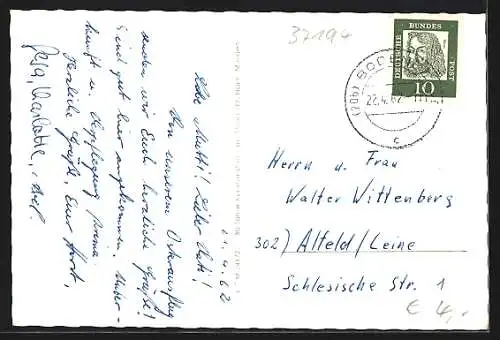 37194
DEUTSCHE BUNDES POST
10
(20b) BODE
22.4.62
c
21.4.62
Liebe Mutti! Lieber Vati!
Von unserem Osterausflug
senden wir Euch herzliche Grüße!
Sind gut hier angekommen. Unter-
kunft u. Verpflegung prima
Herzliche Grüße, Eure Horst,
Charlotte,
Herrn u. Frau
Walter Wittenberg
302) Alfeld/Leine
Schlesische Str. 1
€ 4,-